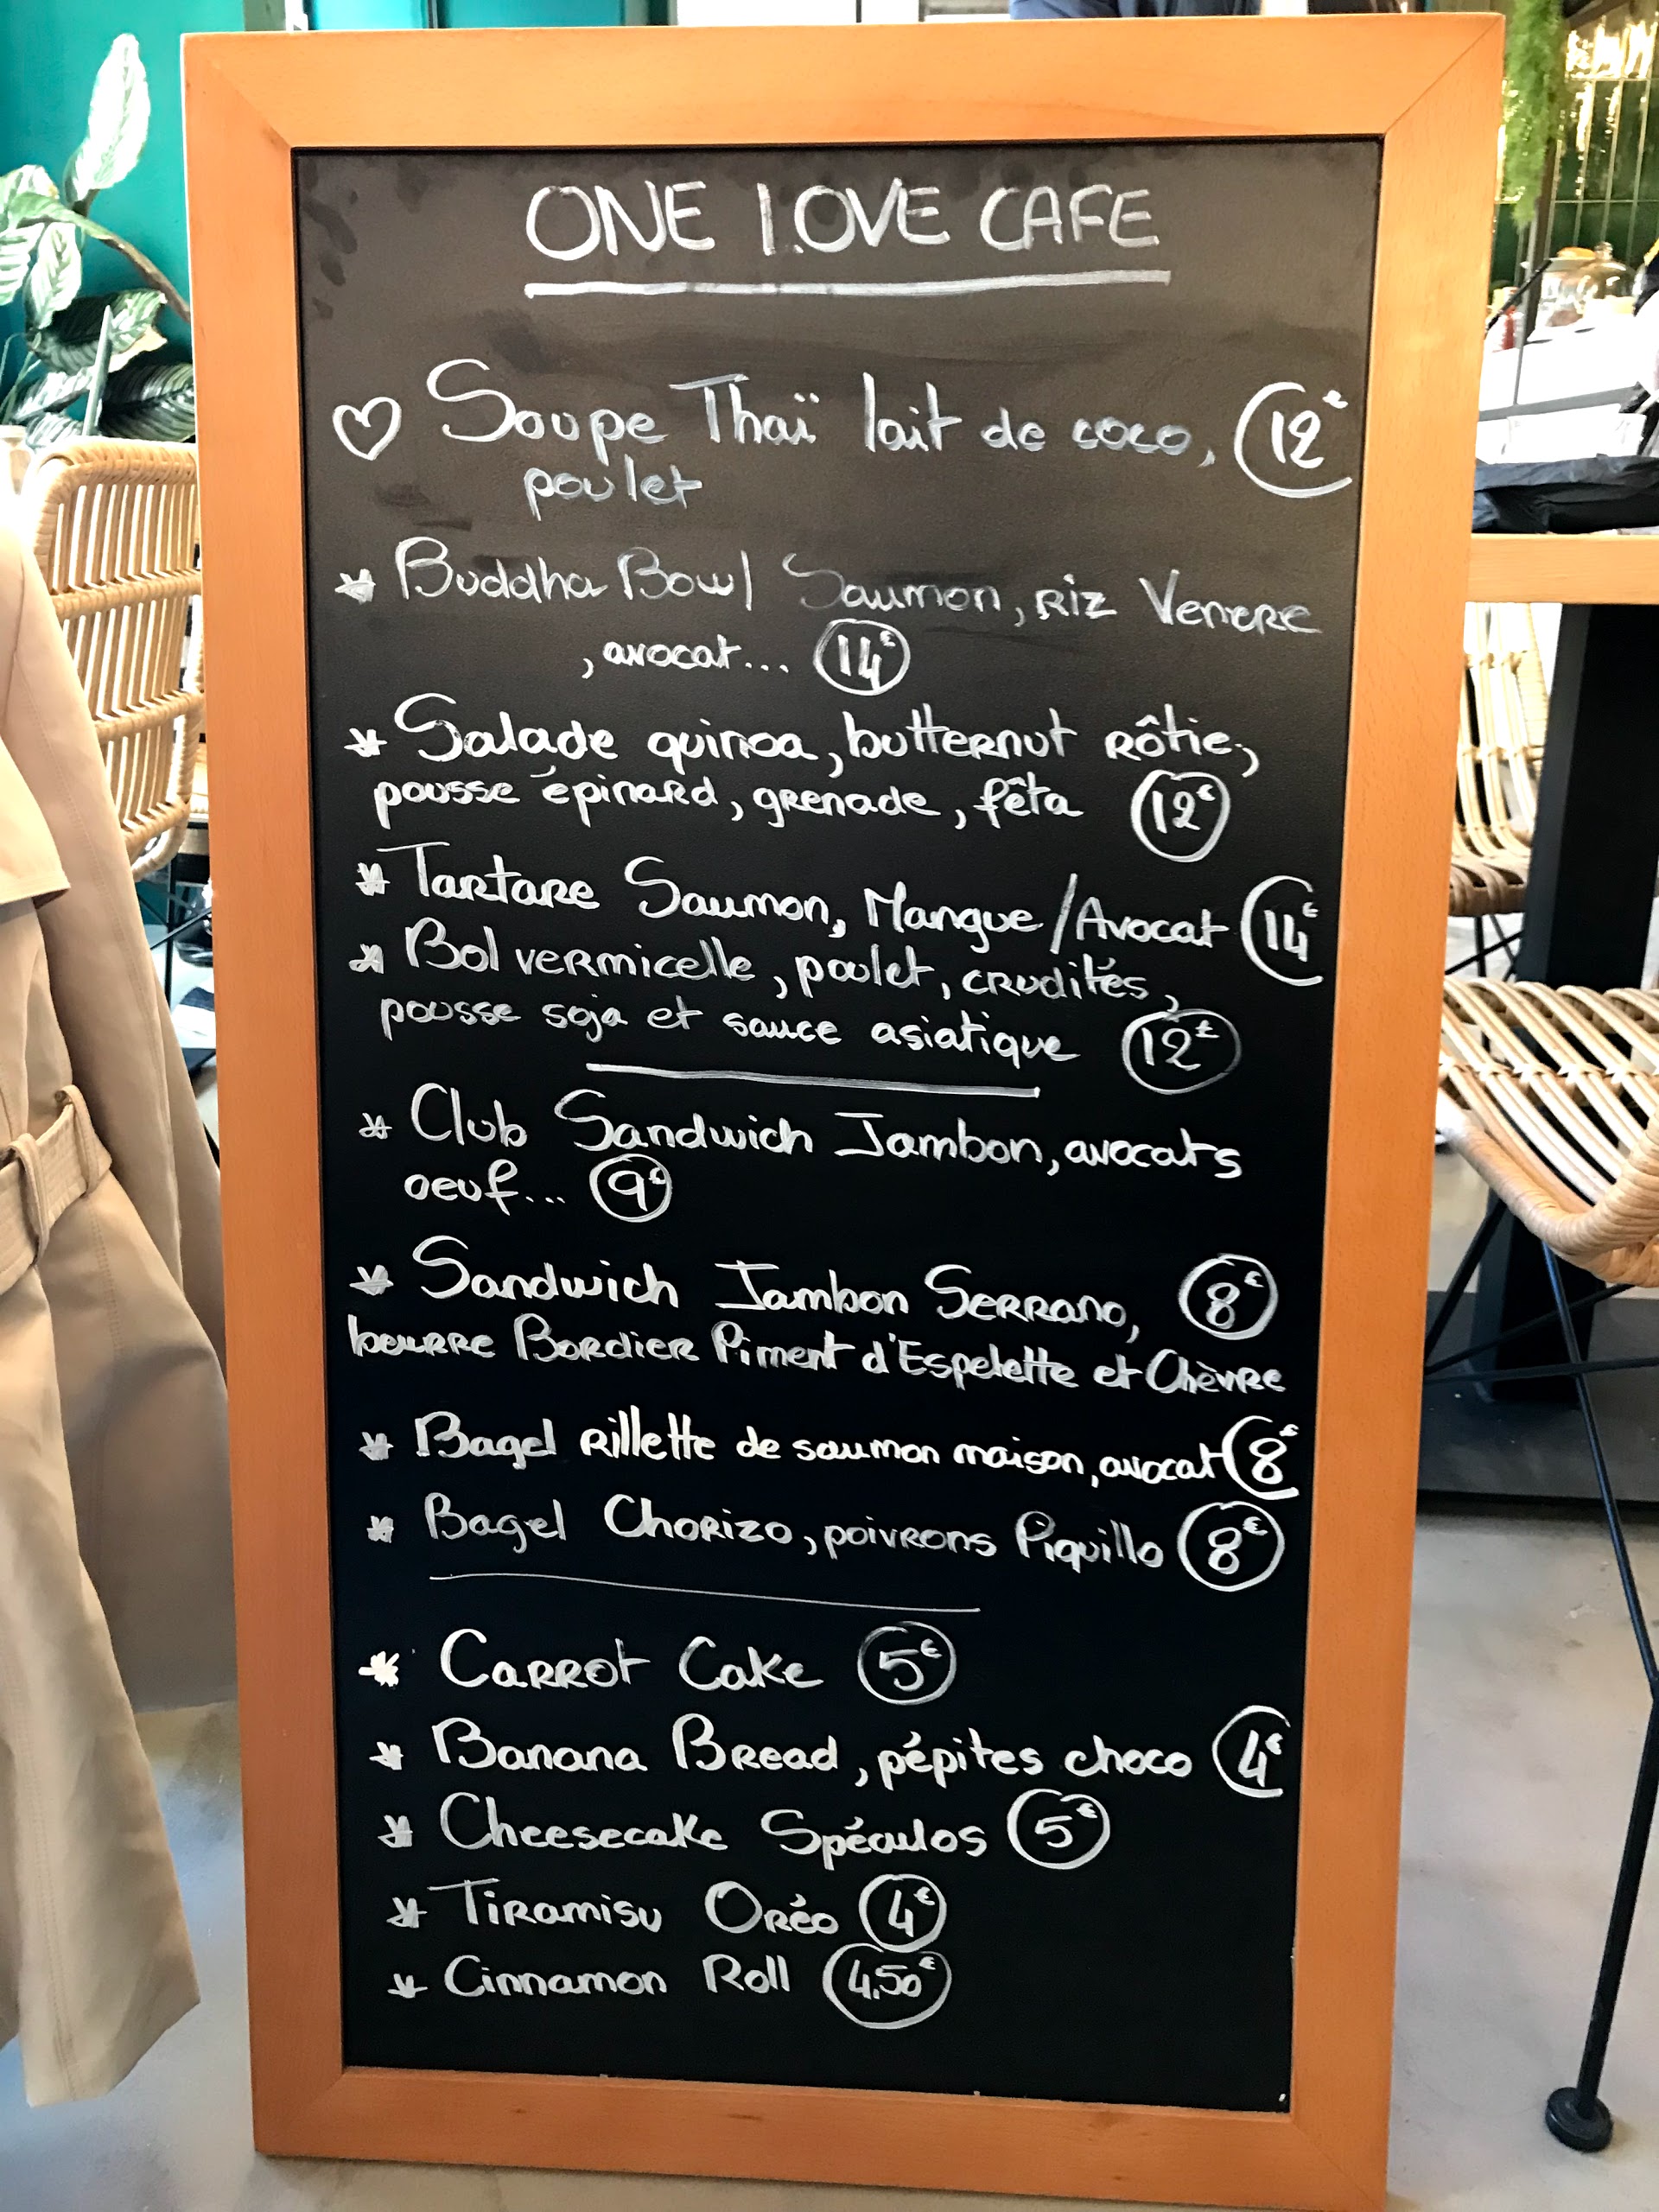 ONE LOVE CAFE
Soupe Thaï lait de coco, 12€
poulet
Buddha Bowl Saumon, riz Venere
, avocat... 14€
Salade quinoa, butternut rôtie,
pousse épinard, grenade, fêta 12€
Tartare Saumon, Mangue/Avocat 14€
Bol vermicelle, poulet, crudités,
pousse soja et sauce asiatique 12€
Club Sandwich Jambon, avocats
oeuf... 9€
Sandwich Jambon Serrano, 8€
beurre Bordier Piment d'Espelette et Chèvre
Bagel rillette de saumon maison, avocat 8€
Bagel Chorizo, poivrons Piquillo 8€
Carrot Cake 5€
Banana Bread, pépites choco 4€
Cheesecake Spéculos 5€
Tiramisu Oréo 4€
Cinnamon Roll 4,50€